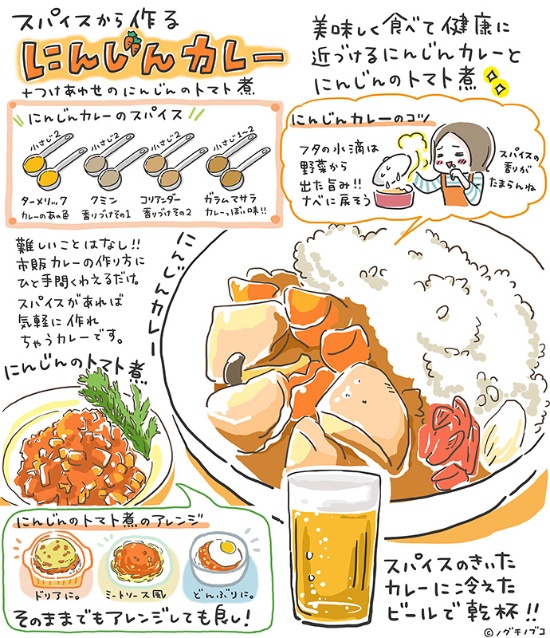 スパイスから作る
にんじんカレー
+つけあわせのにんじんのトマト煮
美味しく食べて健康に
近づけるにんじんカレーと
にんじんのトマト煮
にんじんカレーのスパイス
小さじ2
小さじ2
小さじ2
小さじ1~2
ターメリック
カレーのあの色
クミン
香りづけその1
コリアンダー
香りづけその2
ガラムマサラ
カレーっぽい味!!
にんじんカレーのコツ
フタの水滴は
野菜から
出た旨み!!
ナベに戻そう
スパイスの
香りが
たまらんね
難しいことはなし!!
市販カレーの作り方に
ひと手間くわえるだけ。
スパイスがあれば
気軽に作れ
ちゃうカレーです。
にんじんカレー
にんじんのトマト煮
にんじんのトマト煮のアレンジ
ドリアに。
ミートソース風
どんぶりに。
そのままでもアレンジしても良し!
スパイスのきいた
カレーに冷えた
ビールで乾杯!!
©ノグチノブコ